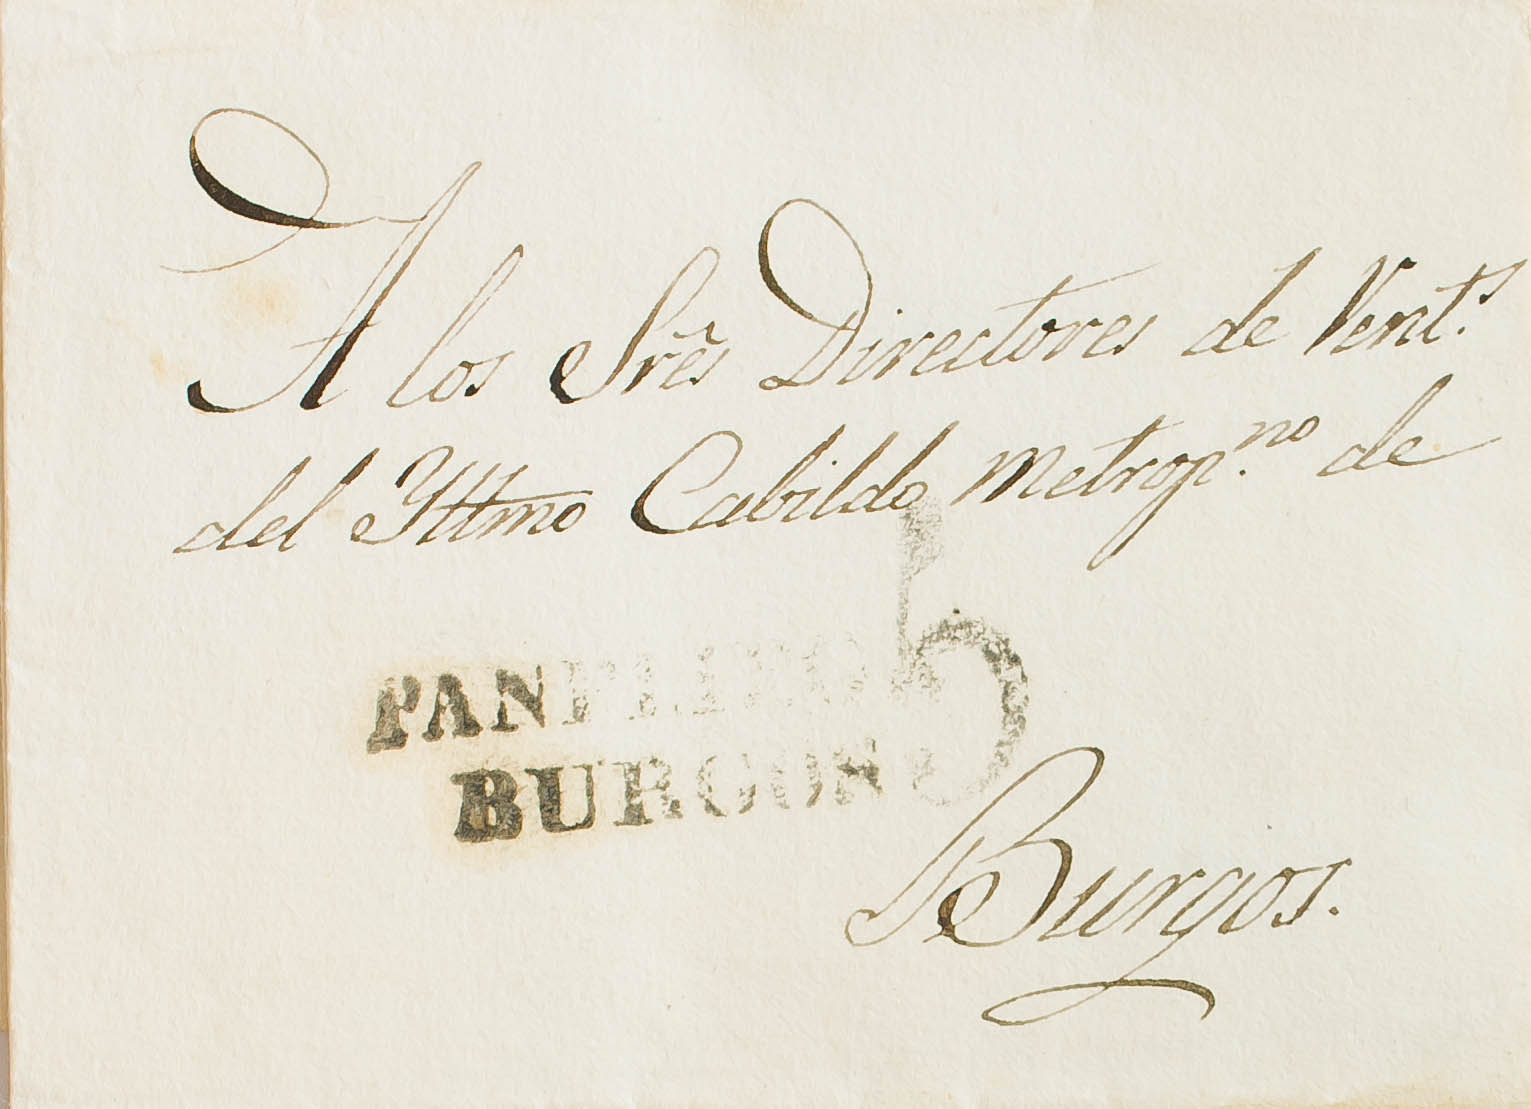 A los Srẽs Directores de Vent.s
del Yltmo Cabildo Metrop.no de
5
PANPLIEGO
BURGOS
Burgos.